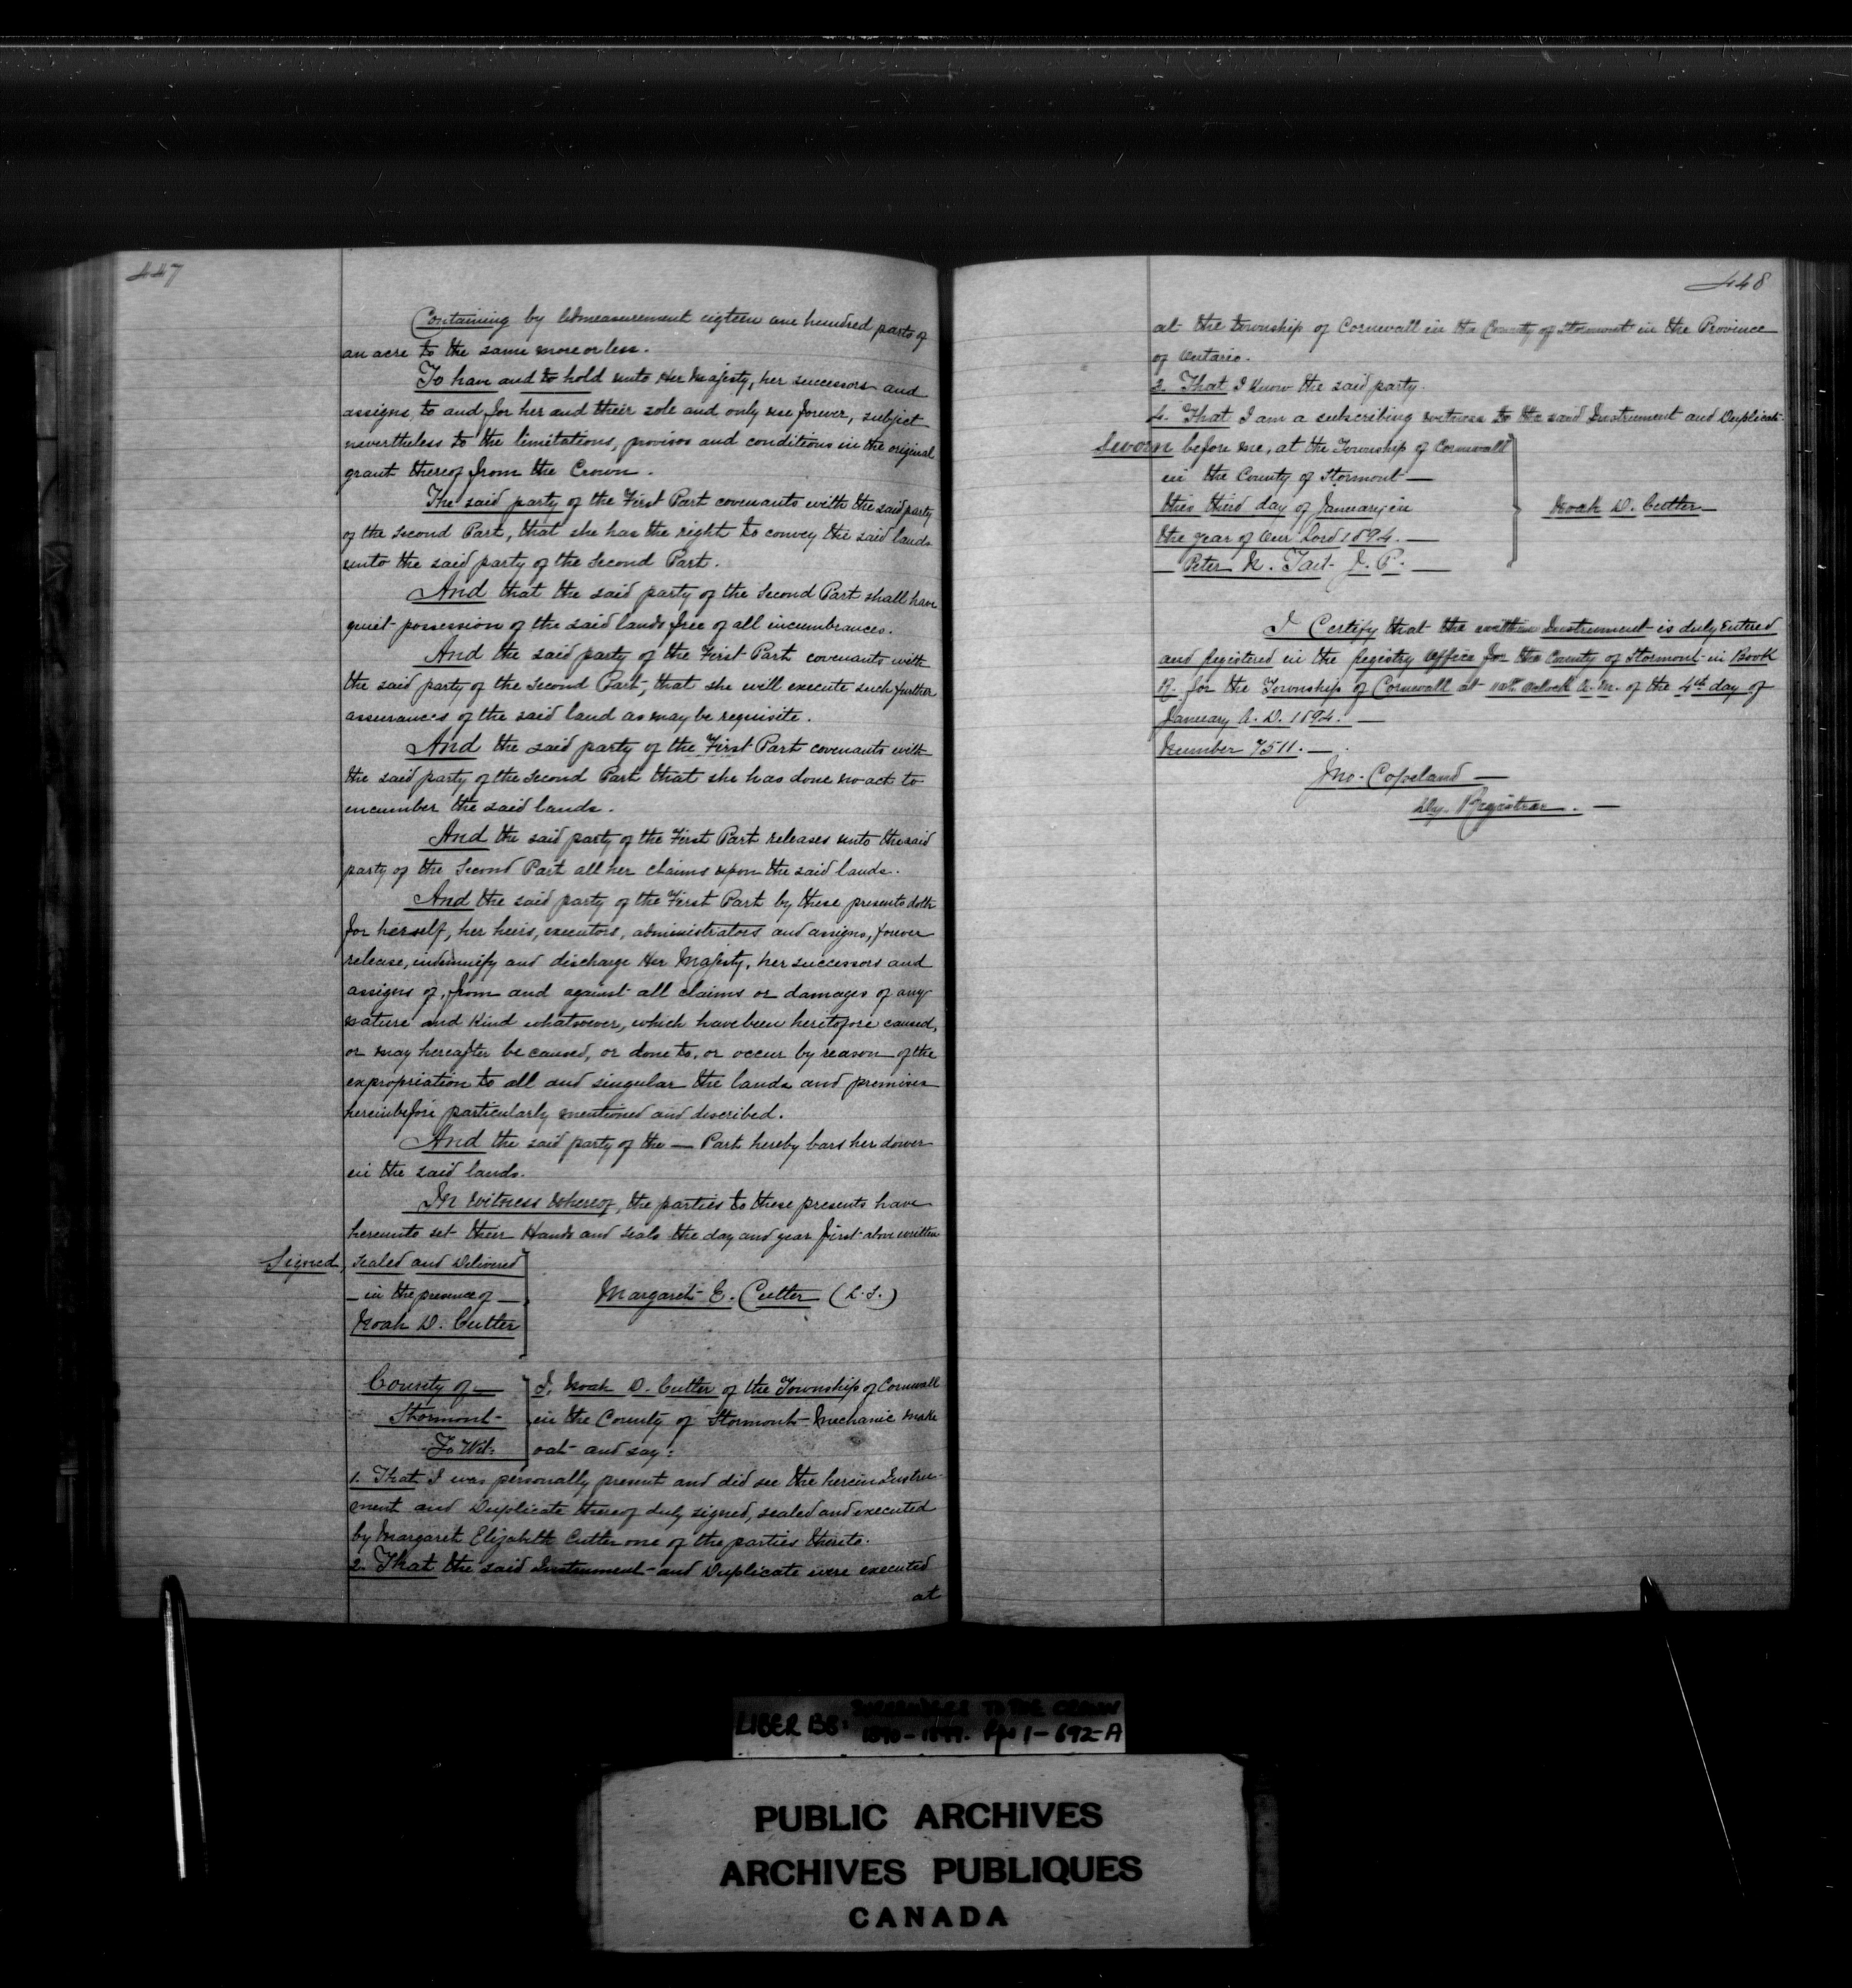 447
Containing by Admeasurement eigteen one hundred parts of
an acre to the same more or less.
To have and to hold unto Her Majesty, her successors and
assigns to and for her and their sole and only use forever, subject
nevertheless to the limitations, provisos and conditions in the original
grant thereof from the Crown.
The said party of the First Part covenants with the said party
of the Second Part, that she has the right to convey the said lands
unto the said party of the Second Part.
And that the said party of the Second Part shall have
quiet possession of the said lands free of all incumbrances.
And the said party of the First Part covenants with
the said party of the Second Part, that she will execute such further
assurances of the said land as may be requisite.
And the said party of the First Part covenants with
the said party of the Second Part that she has done no act to
encumber the said lands.
And the said party of the First Part releases unto the said
party of the Second Part all her claims upon the said lands.
And the said party of the First Part by these presents doth
for herself, her heirs, executors, administrators and assigns, forever
release, indemnify and discharge Her Majesty, her successors and
assigns of, from and against all claims or damages of any
nature and kind whatsoever, which have been heretofore caused,
or may hereafter be caused, or done to, or occur by reason of the
expropriation to all and singular the lands and premises
hereinbefore particularly mentioned and described.
And the said party of the — Part hereby bars her dower
in the said lands.
In Witness Whereof, the parties to these presents have
hereunto set their Hands and seals the day and year first above written
Signed, Sealed and Delivered
— in the presence of —
Noah D. Cutter
Margaret E. Cutter (L.S.)
County of —
Stormont
To Wit:
I, Noah D. Cutter of the Township of Cornwall
in the County of Stormont Mechanic make
oat and say:
1. That I was personally present and did see the herein Instru-
ment and Duplicate thereof duly signed, sealed and executed
by Margaret Elizabeth Cutter one of the parties thereto.
2. That the said Instrument and Duplicate were executed
at
448
at the township of Cornwall in the County of Stormont in the Province
of Ontario.
3. That I know the said party.
4. That I am a subscribing witness to the said Instrument and Duplicate.
Sworn before me, at the Township of Cornwall
in the County of Stormont —
this third day of January in
the year of Our Lord 1894. —
Peter N. Tait J. P. —
Noah D. Cutter
I Certify that the within Instrument is duly Entered
and Registered in the Registry Office for the County of Stormont in Book
R. for the Township of Cornwall at oclock A.M. of the 4th day of
January A.D. 1894. —
Number 7511. —
Jno. Copeland —
Dy. Registrar. —
LIBER BB: SURRENDERS TO THE CROWN
1890-1899. Pgs 1-692-A
PUBLIC ARCHIVES
ARCHIVES PUBLIQUES
CANADA